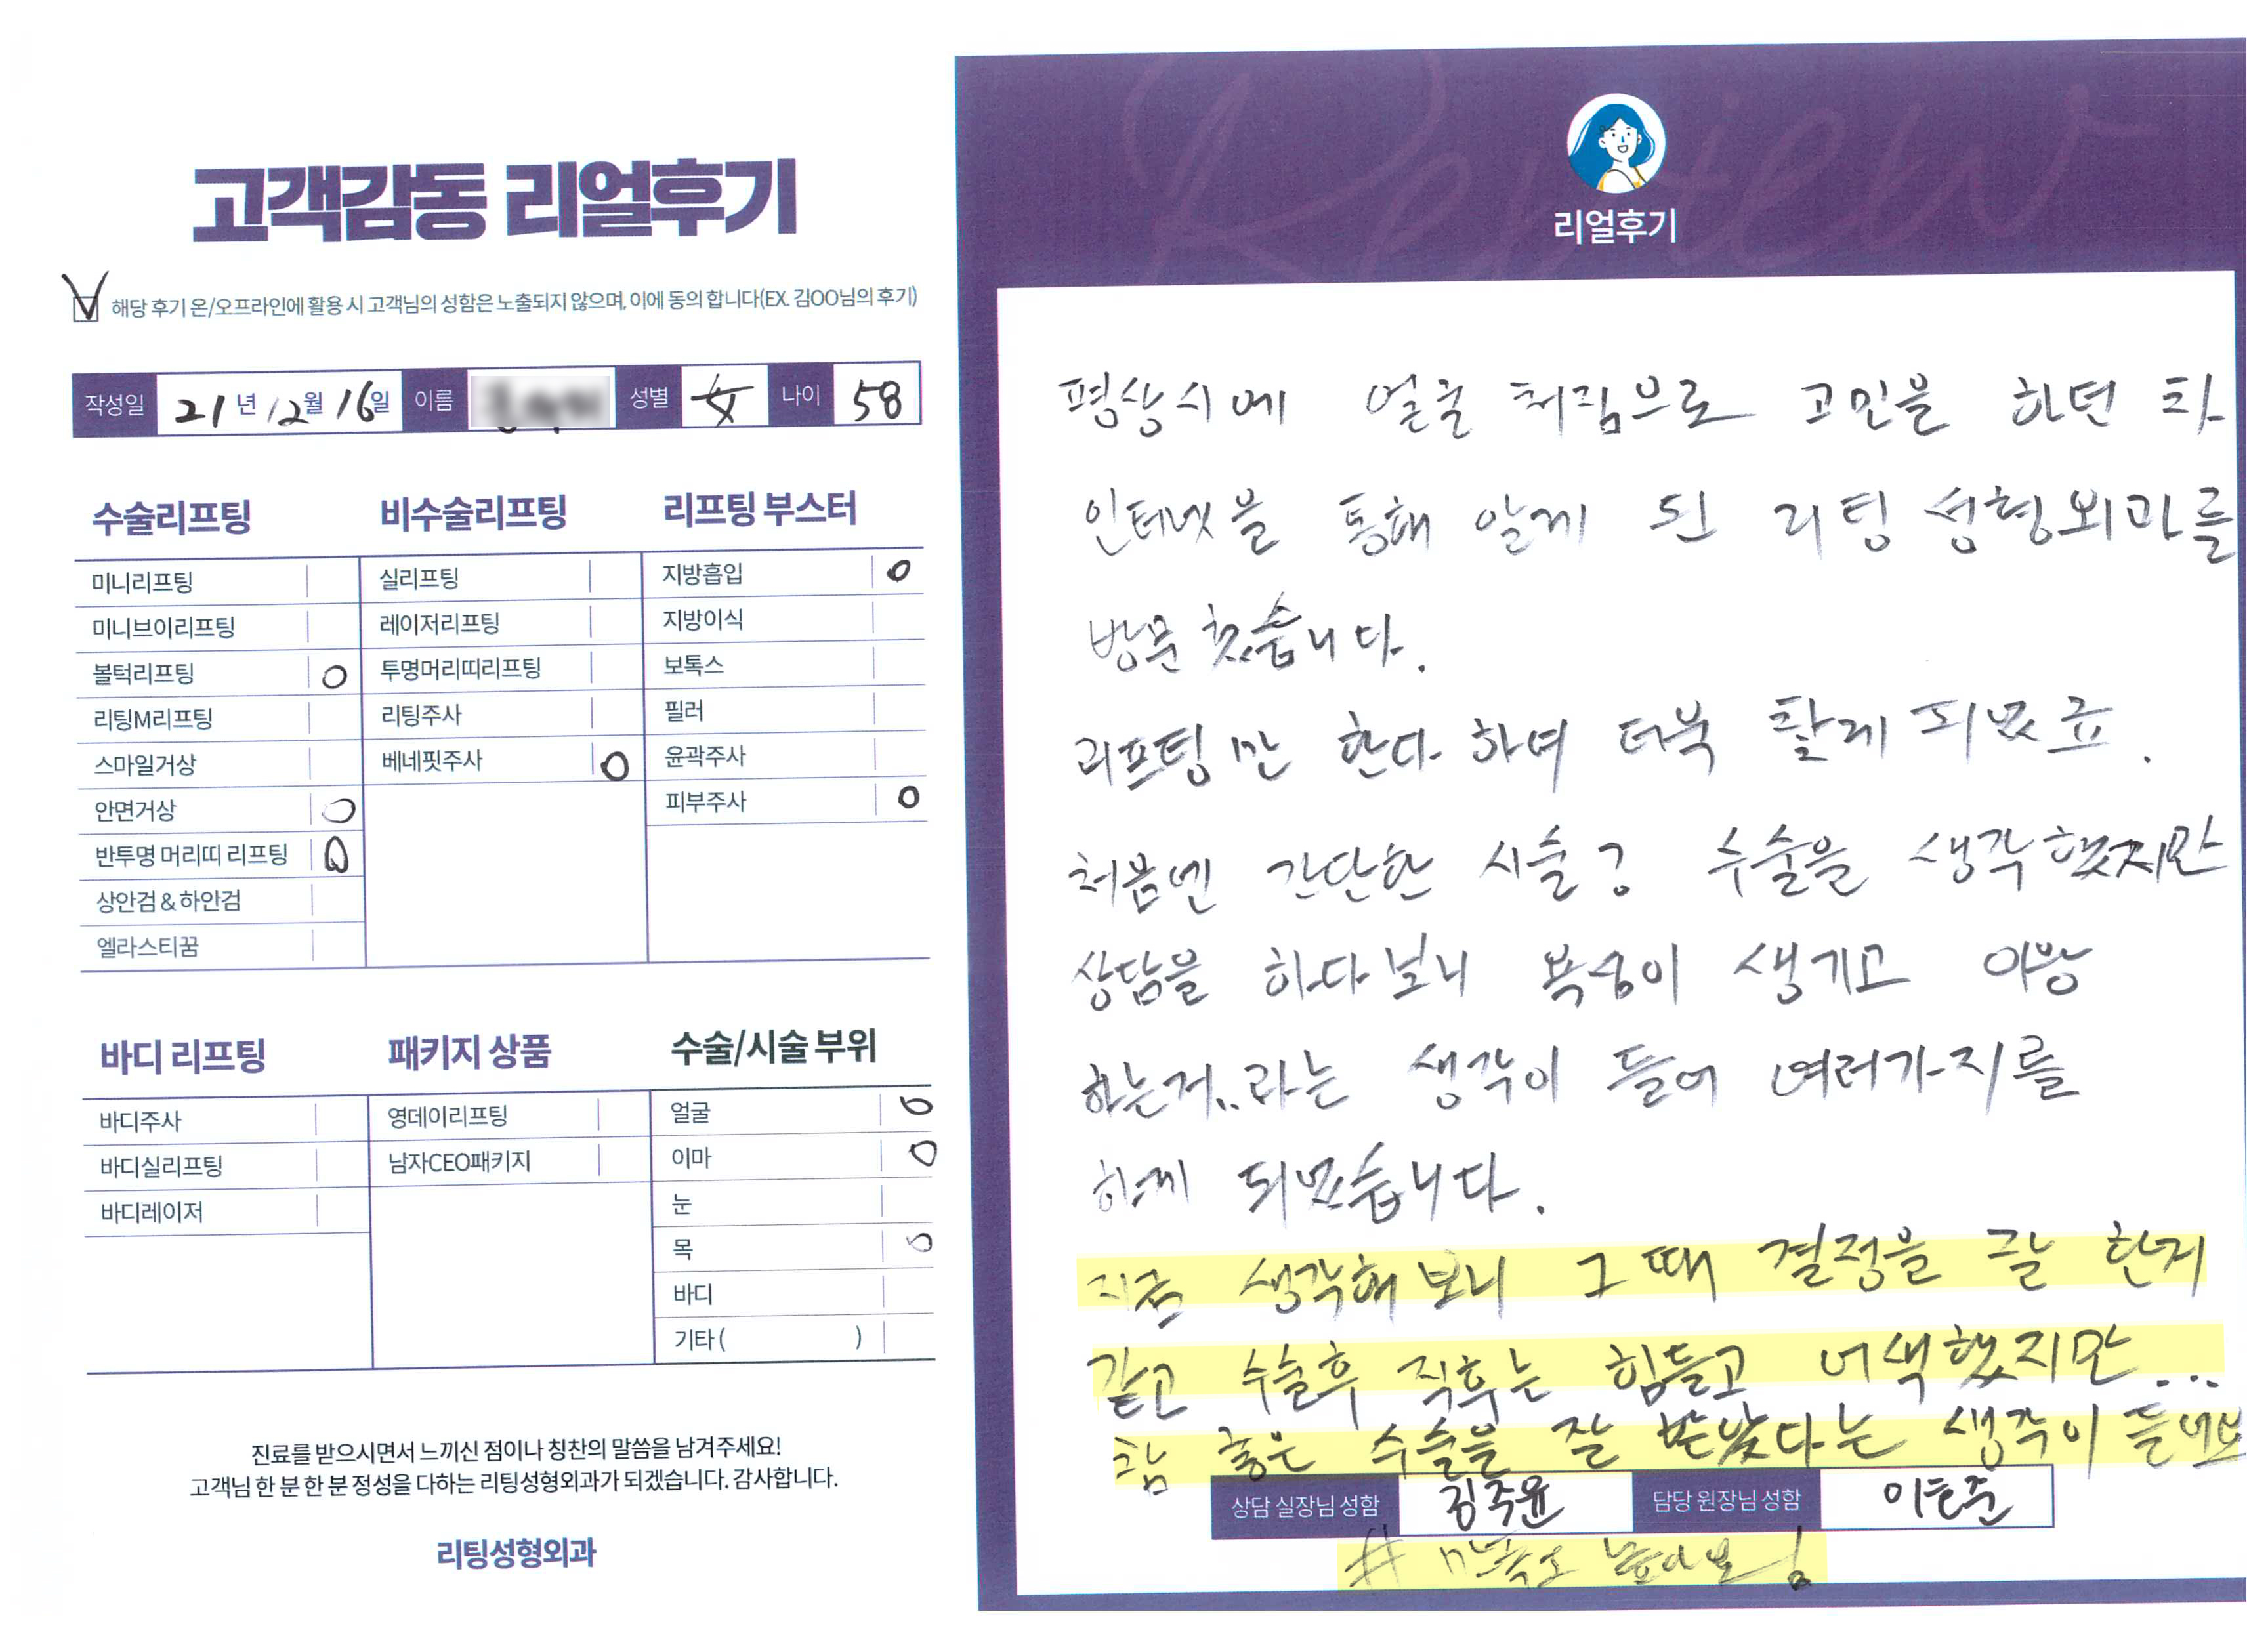 고객감동 리얼후기
해당 후기 온/오프라인에 활용 시 고객님의 성함은 노출되지 않으며, 이에 동의 합니다(EX. 김OO님의 후기)
작성일 21년 12월 16일 이름 성별 女 나이 58
수술리프팅
미니리프팅
미니브이리프팅
볼턱리프팅 O
리팅M리프팅
스마일거상
안면거상 O
반투명 머리띠 리프팅 O
상안검 & 하안검
엘라스티꿈
비수술리프팅
실리프팅
레이저리프팅
투명머리띠리프팅
리팅주사
베네핏주사 O
리프팅 부스터
지방흡입 O
지방이식
보톡스
필러
윤곽주사
피부주사 O
바디 리프팅
바디주사
바디실리프팅
바디레이저
패키지 상품
영데이리프팅
남자CEO패키지
수술/시술 부위
얼굴 O
이마 O
눈
목 O
바디
기타 ( )
진료를 받으시면서 느끼신 점이나 칭찬의 말씀을 남겨주세요!
고객님 한 분 한 분 정성을 다하는 리팅성형외과가 되겠습니다. 감사합니다.
리팅성형외과
Review
리얼후기
평상시에 얼굴 쳐짐으로 고민을 하던 차
인터넷을 통해 알게 된 리팅 성형외과를
방문 했습니다.
리프팅만 한다 하여 더욱 찾게 되었죠.
처음엔 간단한 시술 수술을 생각했지만
상담을 하다보니 욕심이 생기고 이왕
하는거..라는 생각이 들어 여러가지를
하게 되었습니다.
지금 생각해보니 그 때 결정을 잘 한거
같고 수술후 직후는 힘들고 어색했지만...
참 좋은 수술을 잘 받았다는 생각이 들어요
상담 실장님 성함 김주윤 담당 원장님 성함
# 만족도 높아요